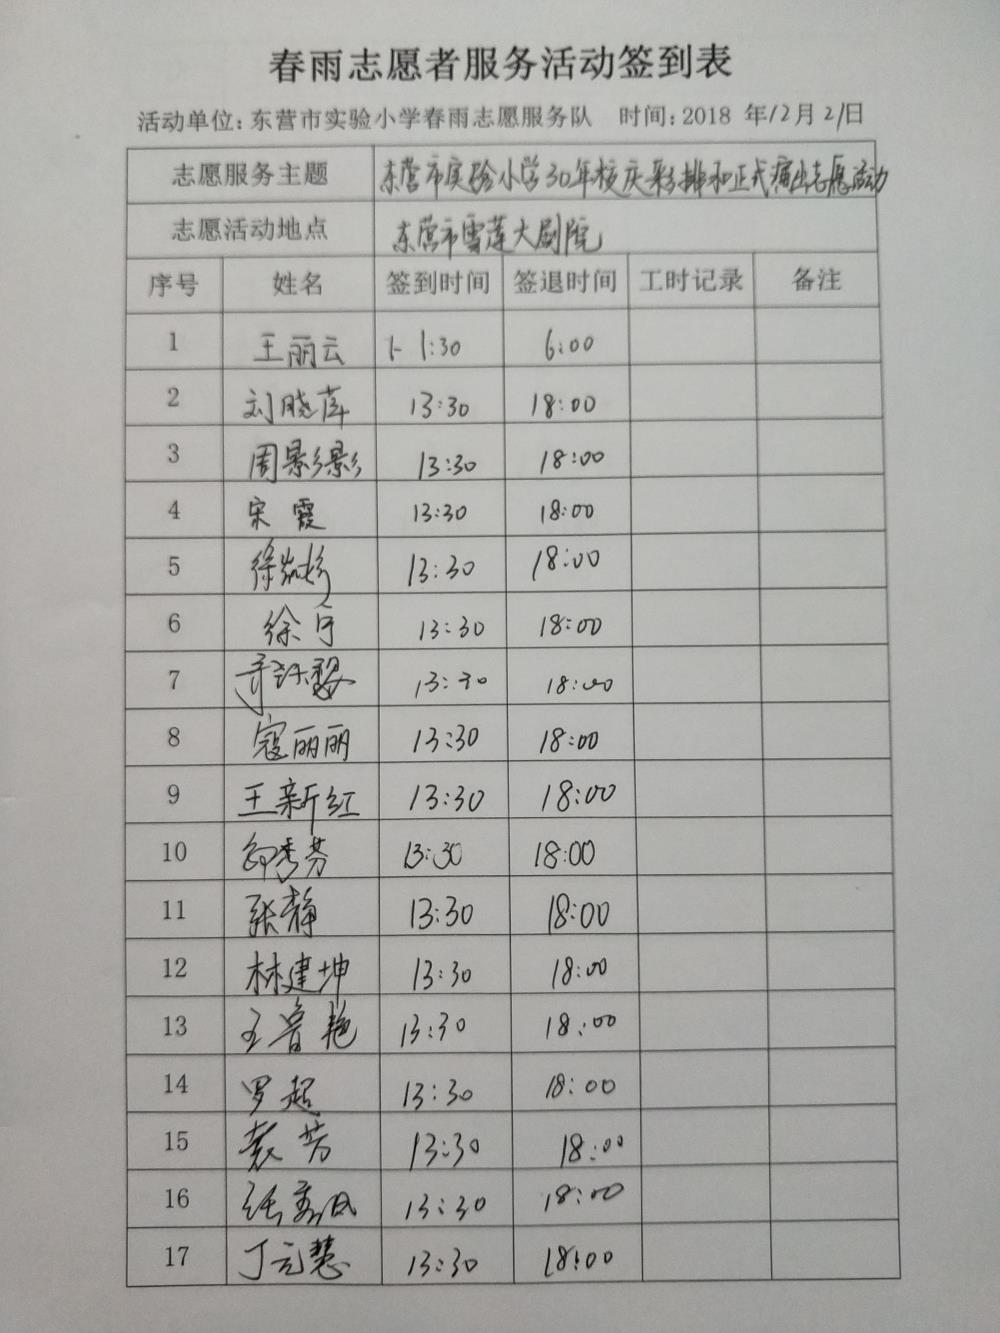 春雨志愿者服务活动签到表
活动单位: 东营市实验小学春雨志愿服务队 时间: 2018 年12月21日
志愿服务主题 东营市实验小学30年校庆彩排和正式演出志愿活动
志愿活动地点 东营市雪莲大剧院
序号 姓名 签到时间 签退时间 工时记录 备注
1 王丽云 1:30 6:00
2 刘晓萍 13:30 18:00
3 周影影 13:30 18:00
4 宋霞 13:30 18:00
5 徐 13:30 18:00
6 徐宁 13:30 18:00
7 13:30 18:00
8 寇丽丽 13:30 18:00
9 王新红 13:30 18:00
10 邵秀芬 13:30 18:00
11 张静 13:30 18:00
12 林建坤 13:30 18:00
13 王鲁艳 13:30 18:00
14 罗超 13:30 18:00
15 袁芳 13:30 18:00
16 13:30 18:00
17 丁元慧 13:30 18:00